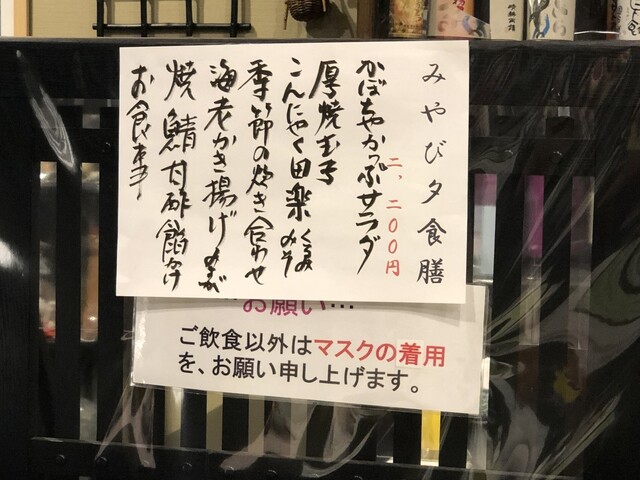 みやび夕食膳
二、二〇〇円
かぼちゃかっぷサラダ
厚焼玉子
こんにゃく田楽 くるみみそ
季節の炊き合わせ
海老かき揚げ
焼鯖甘酢餡かけ
お食事
お願い…
ご飲食以外はマスクの着用
を、お願い申し上げます。